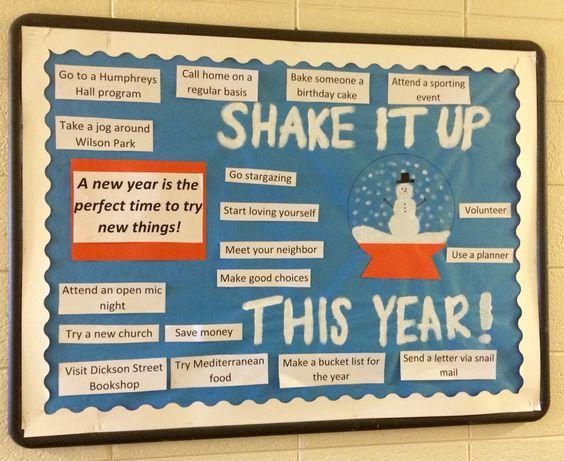 Go to a Humphreys
Hall program
Call home on a
regular basis
Bake someone a
birthday cake
Attend a sporting
event
Take a jog around
Wilson Park
SHAKE IT UP
A new year is the
perfect time to try
new things!
Go stargazing
Start loving yourself
Volunteer
Meet your neighbor
Use a planner
Make good choices
Attend an open mic
night
THIS YEAR!
Try a new church
Save money
Visit Dickson Street
Bookshop
Try Mediterranean
food
Make a bucket list for
the year
Send a letter via snail
mail